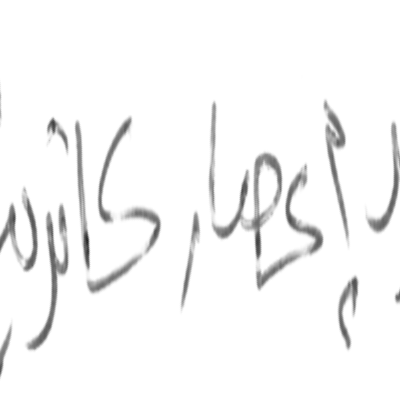 إعصار كاترينا